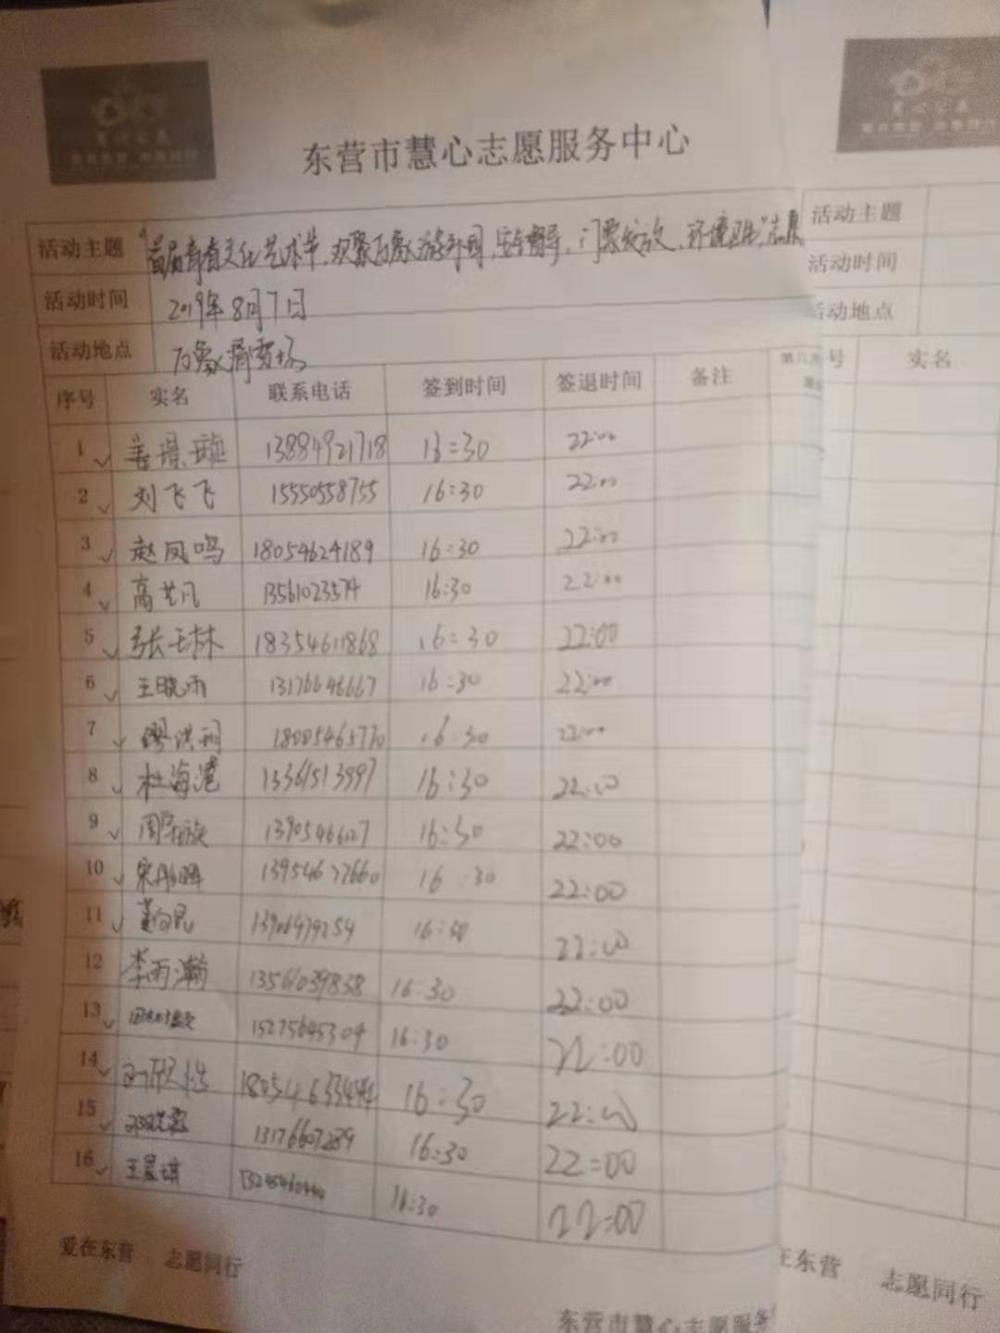 东营市慧心志愿服务中心
活动主题 "首届青春文化艺术节,欢聚万象游乐园,安全督导,门票发放,环境卫生"志愿
活动时间 2019年8月7日
活动地点 万象潮卖场
序号 实名 联系电话 签到时间 签退时间 备注
1 姜璟璇 13884921718 16:30 22:00
2 刘飞飞 15550558755 16:30 22:00
3 赵凤鸣 18054624189 16:30 22:00
4 高艺凡 13561023574 16:30 22:00
5 张玉林 18354611868 16:30 22:00
6 王晓雨 13176646667 16:30 22:00
7 缪洪 18005465770 16:30 22:00
8 杜海港 15361513997 16:30 22:00
9 16:30 22:00
10 16:30 22:00
11 16:30 22:00
12 李雨瀚 13561039838 16:30 22:00
13 15275645304 16:30 22:00
14 18054633444 16:30 22:00
15 13176607289 16:30 22:00
16 王 16:30 22:00
爱在东营 志愿同行
东营市慧心志愿服务
活动主题
活动时间
活动地点
号 实名
在东营 志愿同行